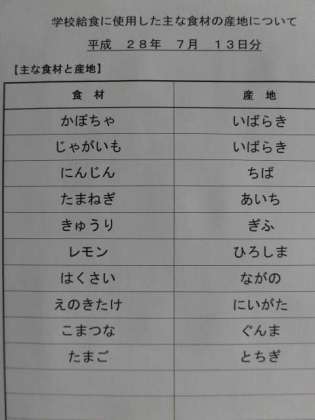 学校給食に使用した主な食材の産地について
平成　２８年　７月　１３日分
【主な食材と産地】
食　材　産　地
かぼちゃ　いばらき
じゃがいも　いばらき
にんじん　ちば
たまねぎ　あいち
きゅうり　ぎふ
レモン　ひろしま
はくさい　ながの
えのきたけ　にいがた
こまつな　ぐんま
たまご　とちぎ